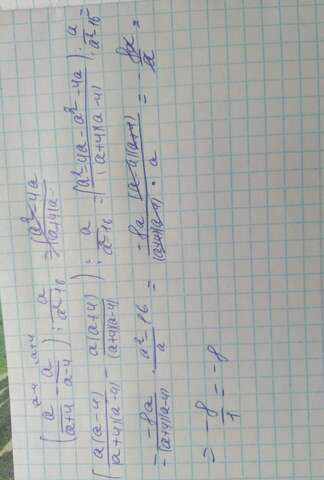 (a/(a+4) - a/(a-4)) : a/(a²-16) = (a²-4a/(a+4)(a-
(a(a-4)/(a+4)(a-4) - a(a+4)/(a+4)(a-4)) : a/(a²-16) = (a²-4a-a²-4a/(a+4)(a-4)) : a/(a²-16) =
= -8a/(a+4)(a-4) · a²-16/a = -8a (a-4)(a+4)/(a+4)(a-4) · a = -8a/a =
= -8/1 = -8